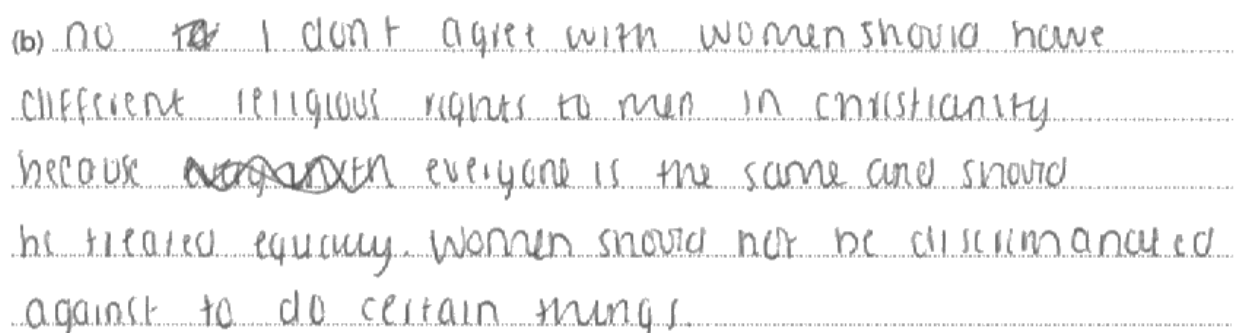 (b) no I dont agree with women should have
different religious rights to men in christianity
because everyone is the same and should
be treated equally. Women should not be discrimanated
against to do certain things.